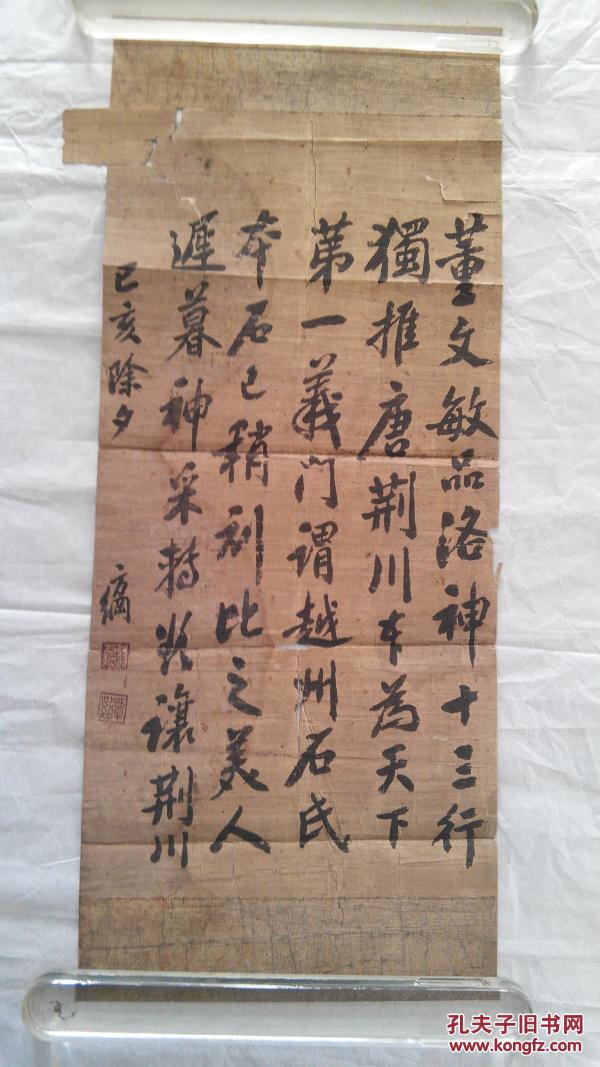 董文敏品洛神十三行
獨推唐荆川本為天下
第一義門謂越州石氏
本石已稍比之美人
遲暮神采轉欲讓荆川
己亥除夕
孔夫子旧书网
www.kongfz.com